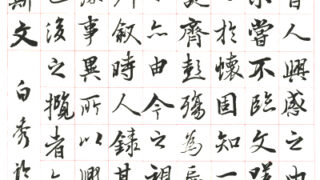 昔人興感之由
嘗不臨文嗟
於懷固知一
齊彭殤為妄
由今之視
列敘時人錄其
事異所以興
後之攬者
斯文 白秀